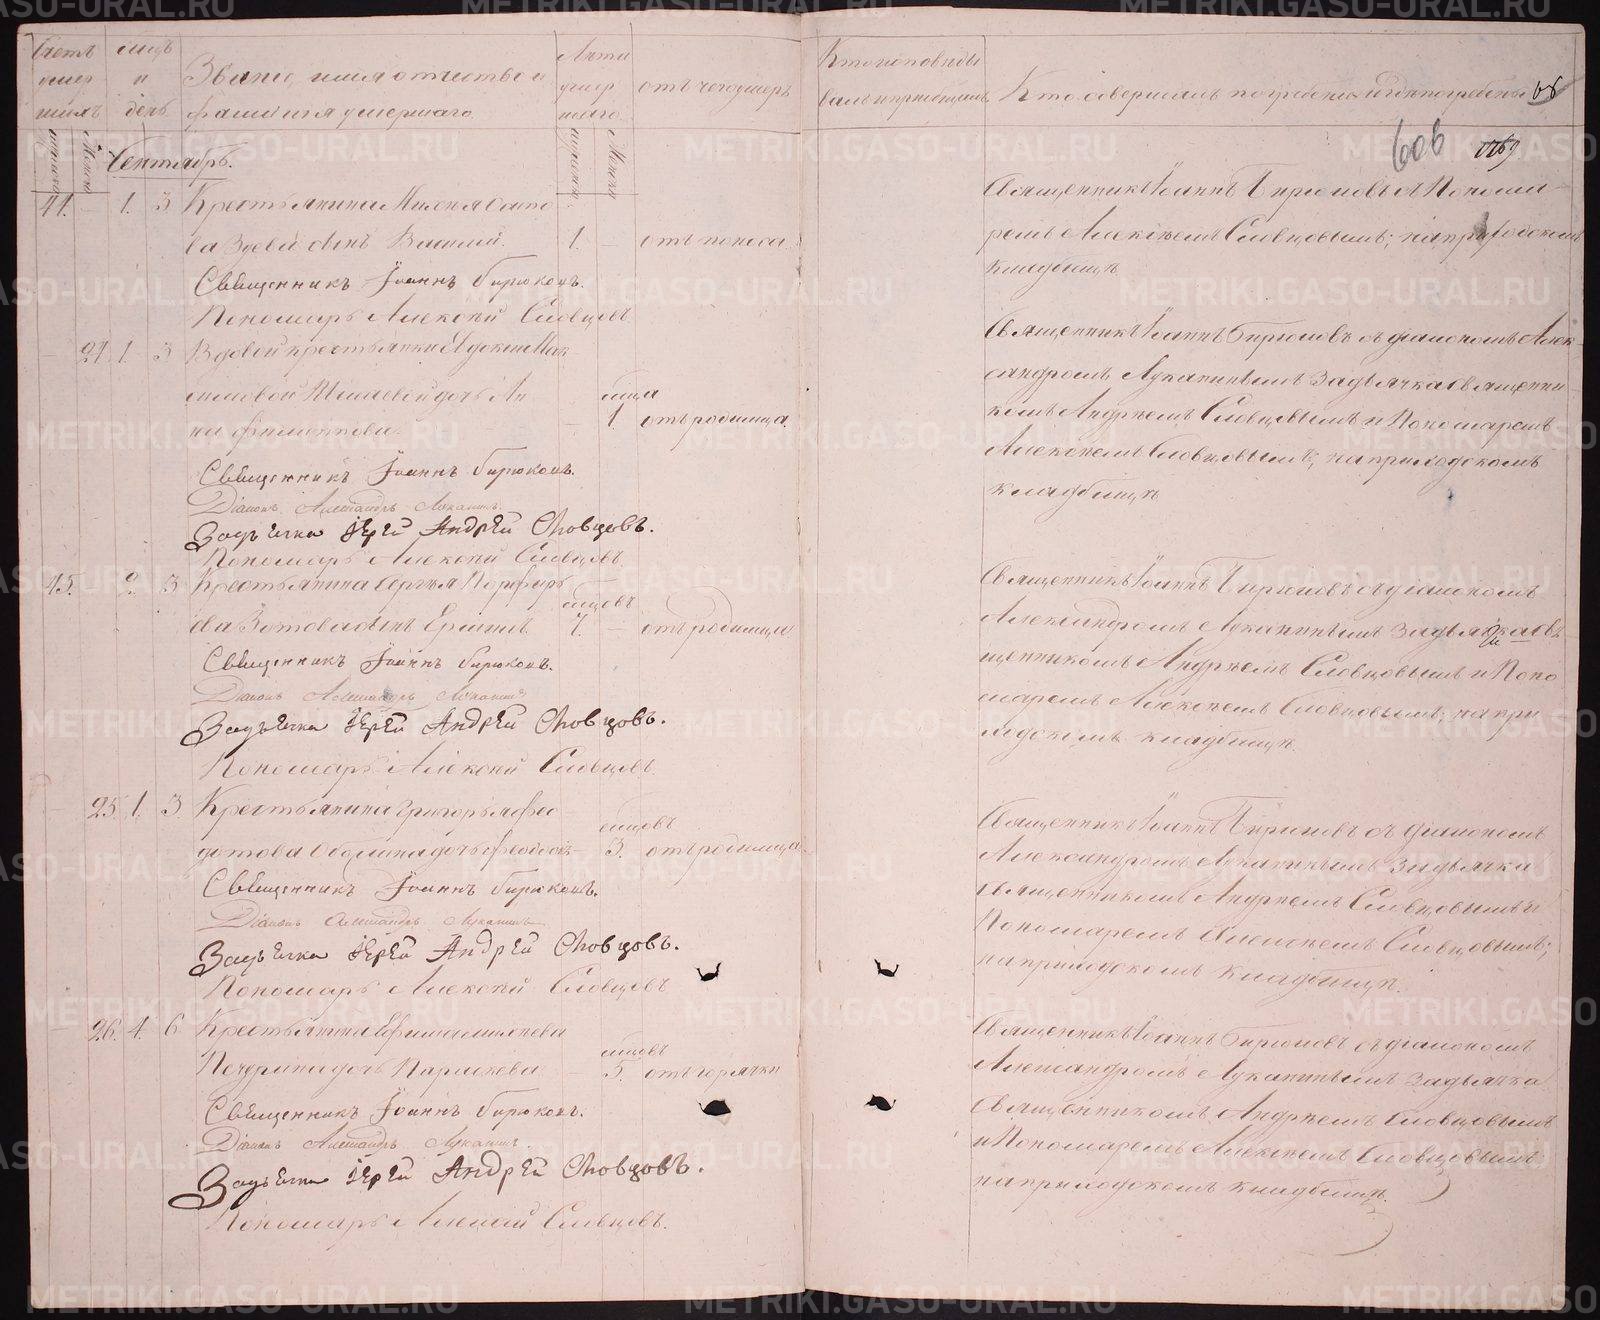 Счетъ умер шихъ
мѣсцъ и день
Званіе, имя отчество и фамилія умершаго.
Лѣта умер шаго.
отъ чего умеръ
Кто исповѣды валъ и пріобщалъ
Кто совершалъ погребеніе и гдѣ погребены
606
Сентябрь.
1. 3 Крестьянина
сынъ Василій. 1. отъ поноса
Священникъ Іоаннъ Бирюковъ.
Пономарь Алексѣй Словцовъ
Священникъ Іоаннъ Бирюковъ съ Понома
ремъ Алексѣемъ Словцовымъ; на приходскомъ
кладбищѣ
21. 1. 3 Вдовой крестьянки Евдокіи Мак
симовой дочь Ан
на 1. отъ родимца.
Священникъ Іоаннъ Бирюковъ.
Діаконъ Александръ Луканинъ.
За дьячка Іерей Андрей Словцовъ.
Пономарь Алексѣй Словцовъ
Священникъ Іоаннъ Бирюковъ съ діакономъ Алек
сандромъ Луканинымъ За дьячка священни
комъ Андреемъ Словцовымъ и Пономаремъ
Алексѣемъ Словцовымъ; на приходскомъ
кладбищѣ
45. 2. 3 Крестьянина Сергѣя Порфирь
ева Зотова сынъ мѣсцовъ 7. отъ родимца
Священникъ Іоаннъ Бирюковъ.
Діаконъ Александръ Луканинъ
За дьячка Іерей Андрей Словцовъ.
Пономарь Алексѣй Словцовъ
Священникъ Іоаннъ Бирюковъ съ діакономъ
Александромъ Луканинымъ За дьячка свя
щенникомъ Андреемъ Словцовымъ и Поно
маремъ Алексѣемъ Словцовымъ; на при
ходскомъ кладбищѣ.
25. 1. 3 Крестьянина Григорья Фео
дотова дочь мѣсцовъ 3. отъ родимца
Священникъ Іоаннъ Бирюковъ.
Діаконъ Александръ Луканинъ
За дьячка Іерей Андрей Словцовъ.
Пономарь Алексѣй Словцовъ
Священникъ Іоаннъ Бирюковъ съ діакономъ
Александромъ Луканинымъ За дьячка
священникомъ Андреемъ Словцовымъ и
Пономаремъ Алексѣемъ Словцовымъ;
на приходскомъ кладбищѣ.
26. 4. 6 Крестьянина
дочь Параскева мѣсцовъ 5. отъ горячки
Священникъ Іоаннъ Бирюковъ.
Діаконъ Александръ Луканинъ.
За дьячка Іерей Андрей Словцовъ.
Пономарь Алексѣй Словцовъ.
Священникъ Іоаннъ Бирюковъ съ діакономъ
Александромъ Луканинымъ За дьячка
Священникомъ Андреемъ Словцовымъ
и Пономаремъ Алексѣемъ Словцовымъ;
на приходскомъ кладбищѣ.
METRIKI.GASO-URAL.RU